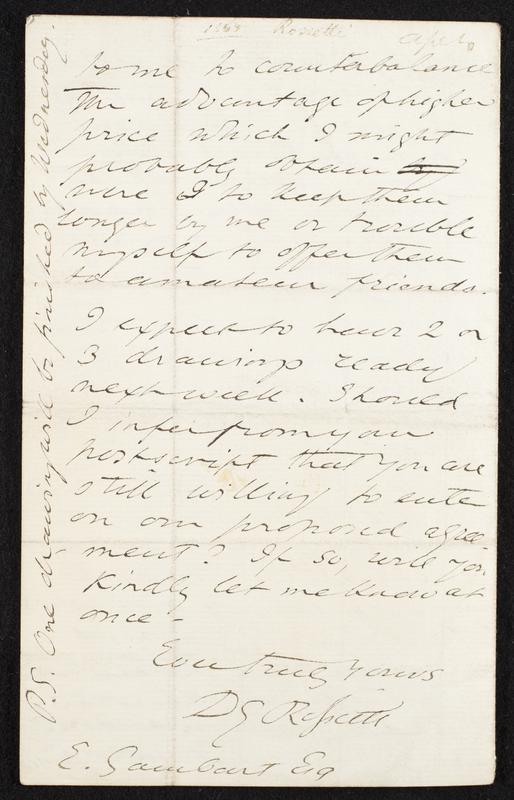 1863 Rossetti
to me to counterbalance
the advantage of higher
price which I might
probably obtain
were I to keep them
longer by me or trouble
myself to offer them
to amateur friends.
I expect to have 2 or
3 drawings ready
next week. Should
I infer from your
postscript that you are
still willing to enter
on our proposed agree-
ment? If so, will you
kindly let me know at
once -
Ever truly yours
DG Rossetti
E. Gambart Esq
P.S. One drawing will be finished by Wednesday.